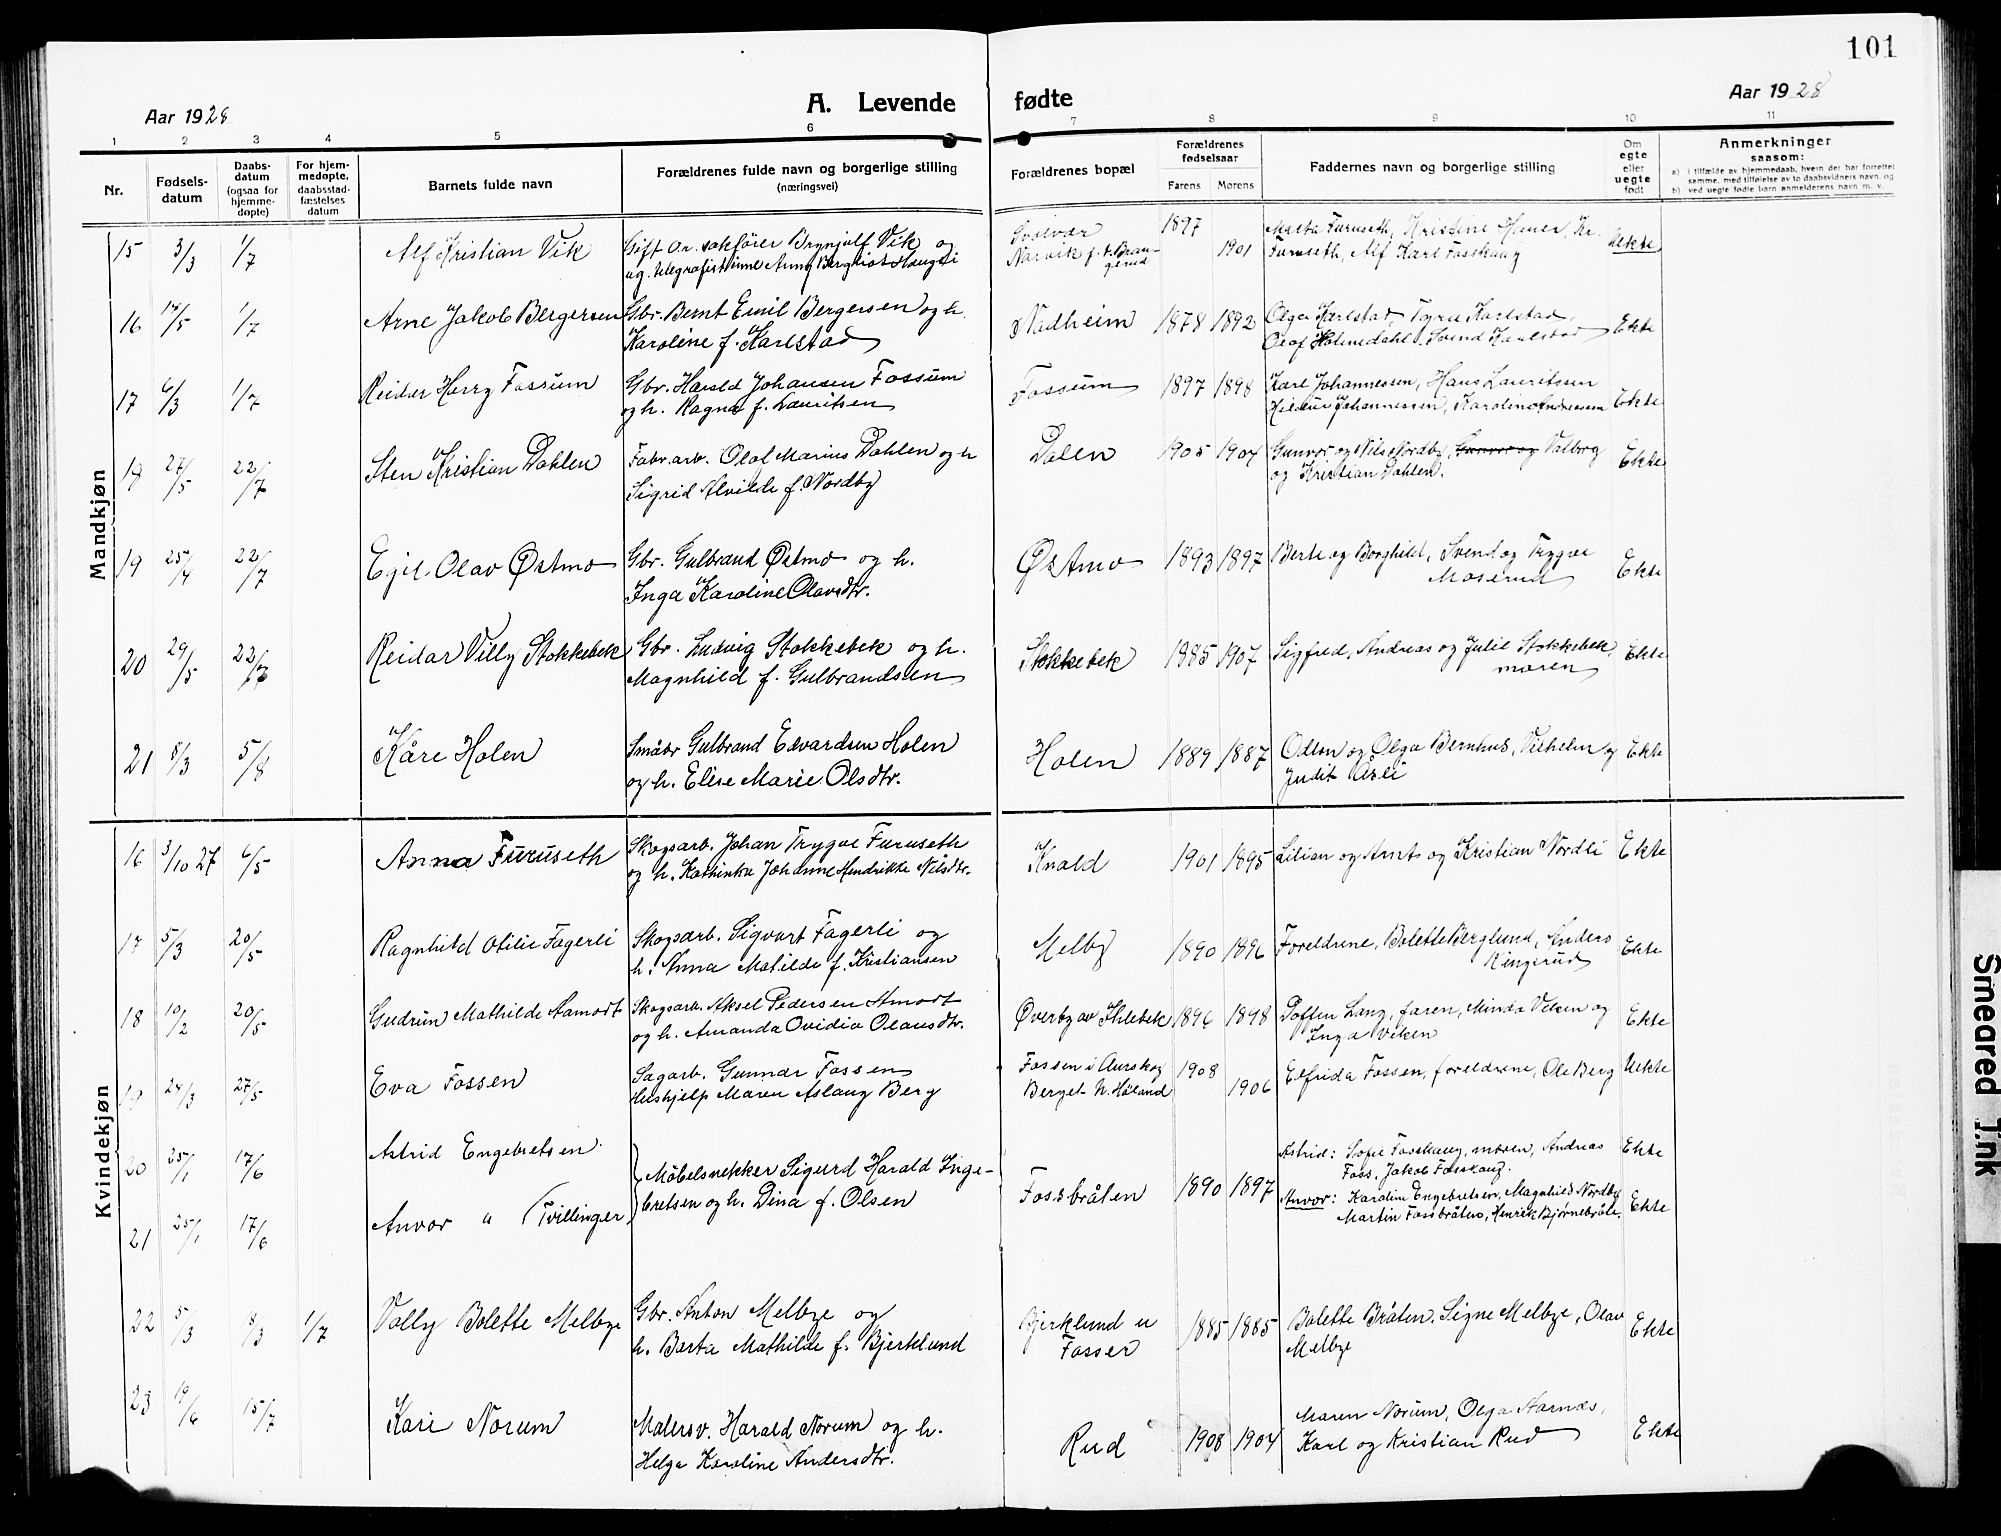 101
Aar 1928 A. Levende fødte Aar 1928
1 2 3 4 5 6 7 8 9 10 11
Nr. Fødsels-datum Daabs-datum (ogsaa for hjemme-døpte) For hjem-medøpte, daabsstad-fæstelses datum Barnets fulde navn Forældrenes fulde navn og borgerlige stilling (næringsvei) Forældrenes bopæl Forældrenes fødselsaar Farens Morens Faddernes navn og borgerlige stilling Om egte eller uegte født Anmerkninger saasom: a) i tilfælde av hjemmedaab, hvem der har forrettet samme, med tilføielse av to daabsvidners navn, og b) ved uegte fødte barn anmelderens navn m. v.
Mandkjøn
15 3/3 1/7 Alf Kristian Vik Gift o.r. sakfører Brynjulf Vik og Svolvær 1897 Marta Furuseth, Kristine Huner, Kr. Uekte
ug. telegrafistinne Anny Bergliot Haugli Narvik f. t. Bran-gerud 1901 Furuseth, Alf Karl Fosskaug
16 14/5 1/7 Arne Jakob Bergersen Gbr. Bernt Emil Bergersen og h. Nadheim 1878 1892 Olga Karlstad, Tyra Karlstad, Ekte
Karoline f. Karlstad Olaf Holmedahl, Svend Karlstad
17 6/3 1/7 Reidar Harry Fossum Gbr. Harald Johansen Fossum Fossum 1897 1898 Karl Johannessen, Hans Lauritsen Ekte
og h. Ragna f. Lauritsen Hildur Johannessen, Karoline Andreassen
18 27/5 22/7 Sten Kristian Dahlen Fabr.arb. Olaf Marius Dahlen og h Dalen 1905 1904 Gunvor og Nils Nordby, Gunvor og Valborg Ekte
Sigrid Alvilde f. Nordby og Kristian Dahlen.
19 25/4 22/7 Egil Olav Østmo Gbr. Gulbrand Østmo og h. Østmo 1893 1897 Berte og Borghild, Svend og Trygve Ekte
Inga Karoline Olavsdtr. Moserud
20 29/5 22/7 Reidar Villy Stokkebek Gbr. Ludvig Stokkebek og h. Stokkebek 1885 1907 Sigfred, Andreas og Julie Stokkebek, Ekte
Magnhild f. Gulbrandsen moren
21 8/3 5/8 Kåre Holen Småbr Gulbrand Edvardsen Holen Holen 1889 1887 Odlon og Olga Bernhus, Vilhelm og Ekte
og h. Elise Marie Olsdtr. Judit Åsli
Kvindekjøn
16 3/10 27 6/5 Anna Furuseth Skogsarb. Johan Trygve Furuseth Knald 1901 1895 Lilian og Arnt og Kristian Nordli Ekte
og h. Kathinka Johanne Hendrikke Nilsdtr.
17 5/3 20/5 Ragnhild Otilie Fagerli Skogsarb. Sigvart Fagerli og Melby 1890 1896 Foreldrene, Bolette Berglund, Anders Ekte
h. Anna Matilde f. Kristiansen Ringerud
18 10/2 20/5 Gudrun Mathilde Aamodt Skogsarb. Aksel Pedersen Amodt Øverby av Ihlebek 1896 1898 Doften Lang, faren, Minda Viken og Ekte
og h. Amanda Ovidia Olausdtr. Inga Viken
19 24/3 27/5 Eva Fossen Sagarb. Gunnar Fossen Fossen i Aurskog 1908 Elfrida Fossen, foreldrene, Ole Berg Uekte
Hushjelp Maren Aslaug Berg Berget N. Høland 1906
20 25/1 17/6 Astrid Engebretsen Møbelsnekker Sigurd Harald Inge- Astrid: Sofie Fosskaug, moren, Andreas Ekte
bretsen og h. Dina f. Olsen Fossbråten 1890 1897 Foss, Jakob Fosskaug.
21 25/1 17/6 Anvor " (Tvillinger Anvor: Karoline Engebretsen, Magnhild Nordby Ekte
Martin Fossbråten, Henrik Bjørnebråte.
22 5/3 8/3 1/7 Volly Bolette Melbye Gbr. Anton Melbye og Bjerklund u 1885 1885 Bolette Bråten, Signe Melbye, Olav Ekte
h. Berta Mathilde f. Bjerklund Fosser Melbye
23 19/6 15/7 Kari Norum Malersv. Harald Norum og h. Rud 1908 1904 Maren Norum, Olga Aarnæs, Ekte
Helga Karoline Andersdtr. Karl og Kristian Rud
Smeared Ink